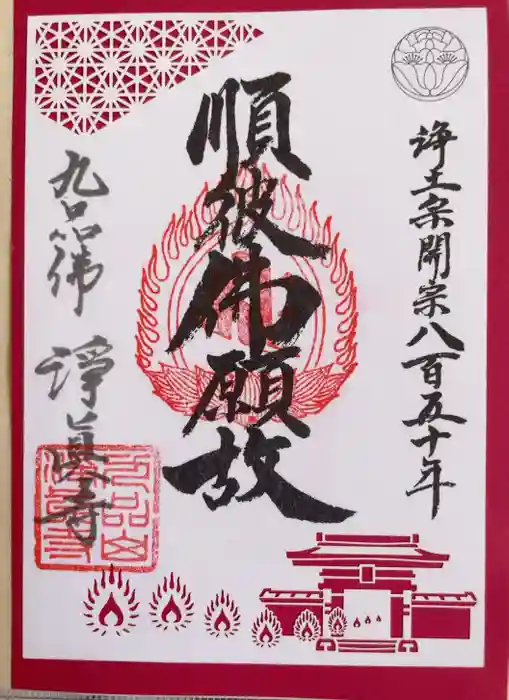 浄土宗開宗八百五十年
順彼佛願故
九品佛
淨眞寺